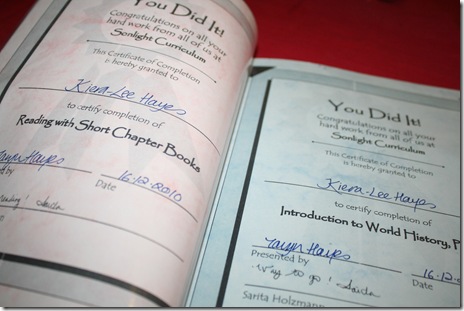 You Did It!
Congratulations on all your
hard work from all of us at
Sonlight Curriculum
This Certificate of Completion
is hereby granted to
Kiera-Lee Hayes
to certify completion of
Reading with Short Chapter Books
Taryn Hayes
16·12·2010
Date
You Did It!
Congratulations on all your
hard work from all of us at
Sonlight Curriculum
This Certificate of Completion
is hereby granted to
Kiera-Lee Hayes
to certify completion of
Introduction to World History, P
Taryn Hayes
16·12·
Presented by
Date
Way to go!
Sarita Holzmann